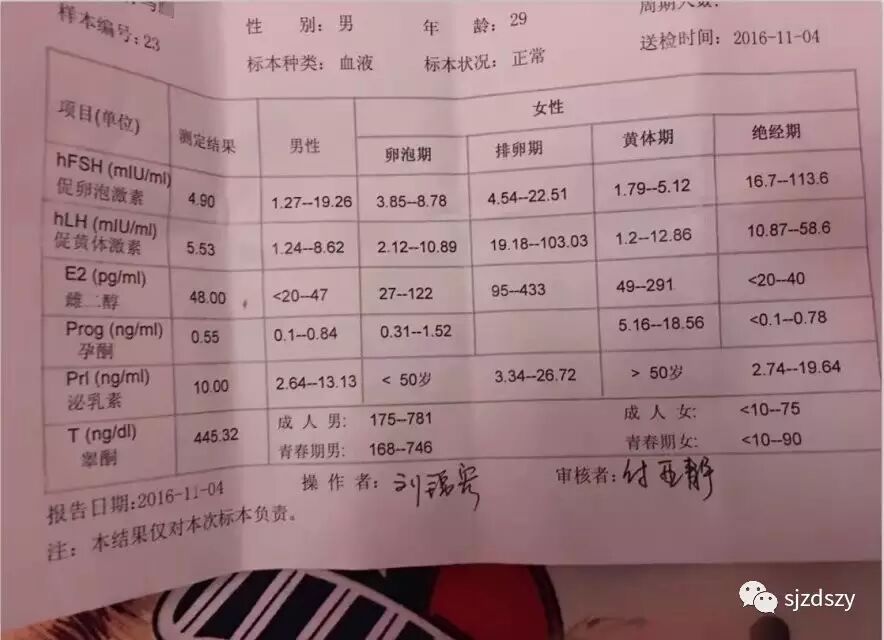 样本编号:23
性 别: 男
年 龄: 29
标本种类: 血液
标本状况: 正常
送检时间: 2016-11-04
项目(单位) 测定结果 男性 女性
卵泡期 排卵期 黄体期 绝经期
hFSH (mIU/ml) 促卵泡激素 4.90 1.27--19.26 3.85--8.78 4.54--22.51 1.79--5.12 16.7--113.6
hLH (mIU/ml) 促黄体激素 5.53 1.24--8.62 2.12--10.89 19.18--103.03 1.2--12.86 10.87--58.6
E2 (pg/ml) 雌二醇 48.00 <20--47 27--122 95--433 49--291 <20--40
Prog (ng/ml) 孕酮 0.55 0.1--0.84 0.31--1.52 5.16--18.56 <0.1--0.78
Prl (ng/ml) 泌乳素 10.00 2.64--13.13 < 50岁 3.34--26.72 > 50岁 2.74--19.64
T (ng/dl) 睾酮 445.32 成 人 男: 175--781 成 人 女: <10--75
青春期男: 168--746 青春期女: <10--90
报告日期:2016-11-04 操 作 者: 审核者:付亚静
注: 本结果仅对本次标本负责。
sjzdszy